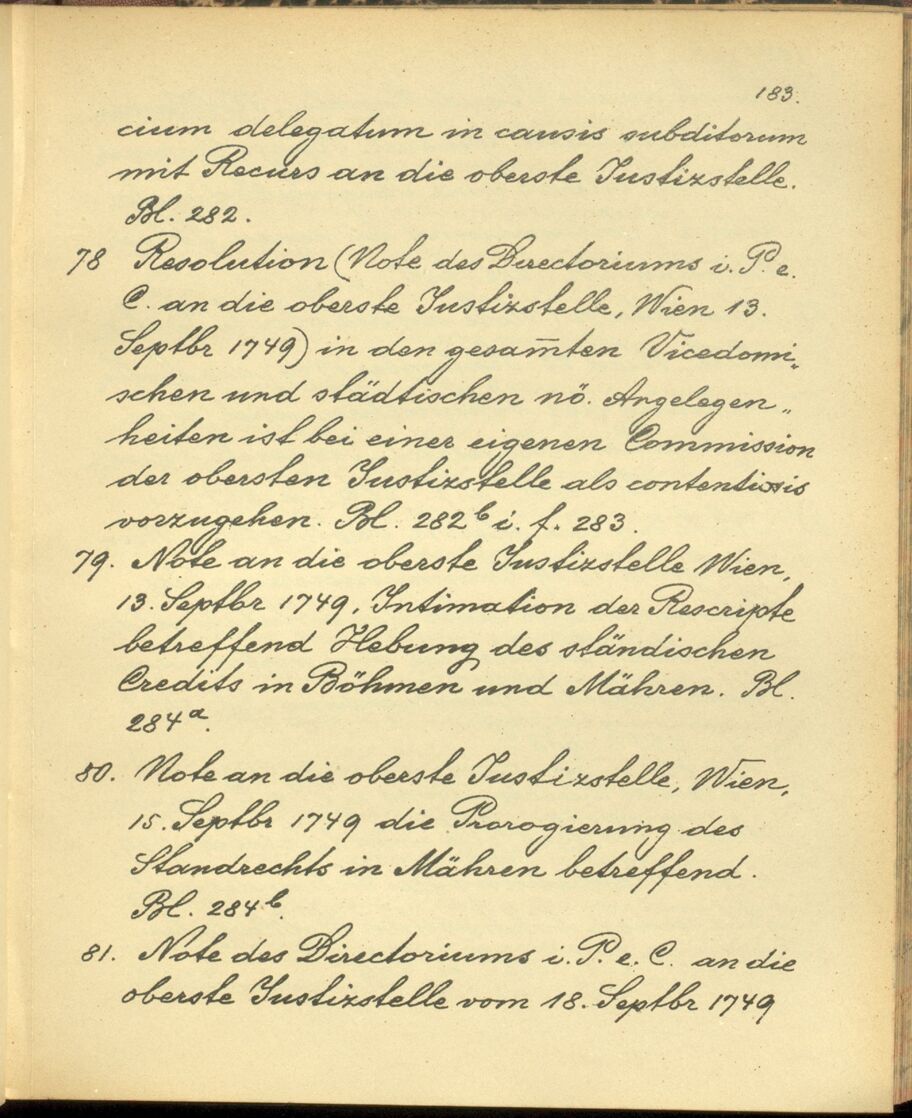 183.
cium delegatum in causis subditorum
mit Recurs an die oberste Justizstelle.
Bl. 282.
78 Resolution (Note des Directoriums i. P. e.
C. an die oberste Justizstelle, Wien 13.
Septbr 1749) in den gesam̅ten Vicedomi„
schen und städtischen nö. Angelegen„
heiten ist bei einer eigenen Commission
der obersten Justizstelle als contentiosis
vorzugehen. Bl. 282b i. f. 283.
79. Note an die oberste Justizstelle Wien,
13. Septbr 1749, Intimation der Rescripte
betreffend Hebung des ständischen
Credits in Böhmen und Mähren. Bl.
284a.
80. Note an die oberste Justizstelle, Wien,
15. Septbr 1749 die Prorogierung des
Standrechts in Mähren betreffend.
Bl. 284b.
81. Note des Directoriums i. P. e. C. an die
oberste Justizstelle vom 18. Septbr 1749